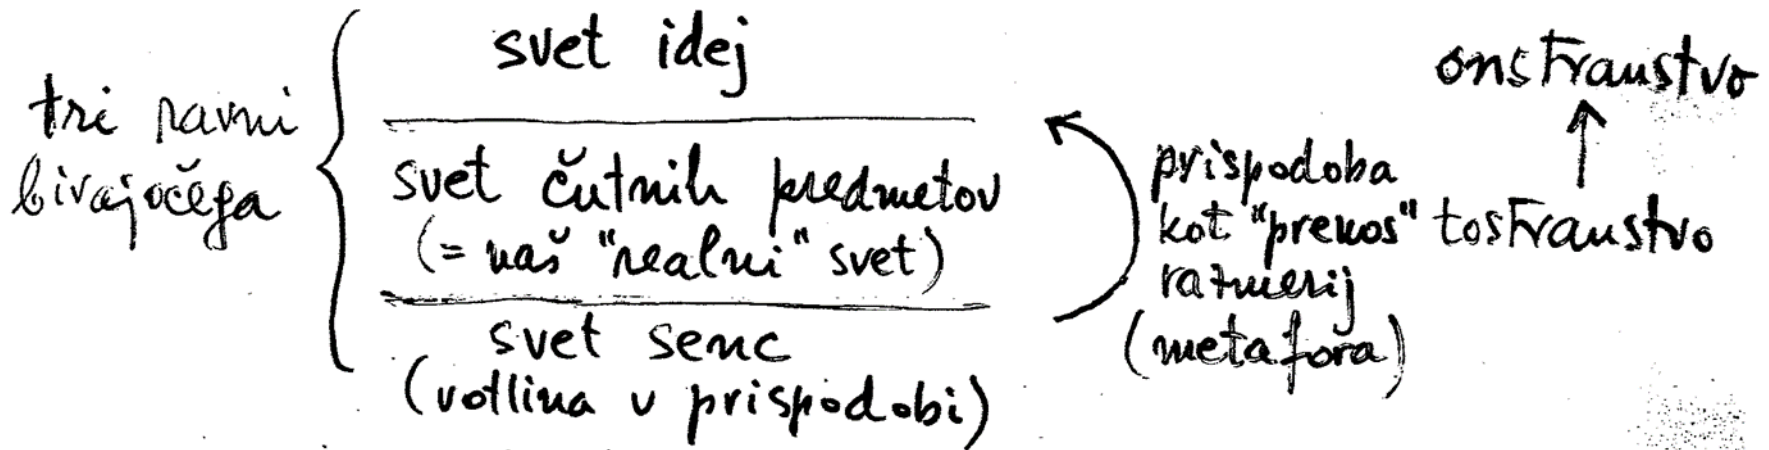 tri ravni
bivajočega
svet idej
svet čutnih predmetov
(= naš "realni" svet)
svet senc
(votlina v prispodobi)
prispodoba
kot "prenos"
razmerij
(metafora)
onstranstvo
tostranstvo